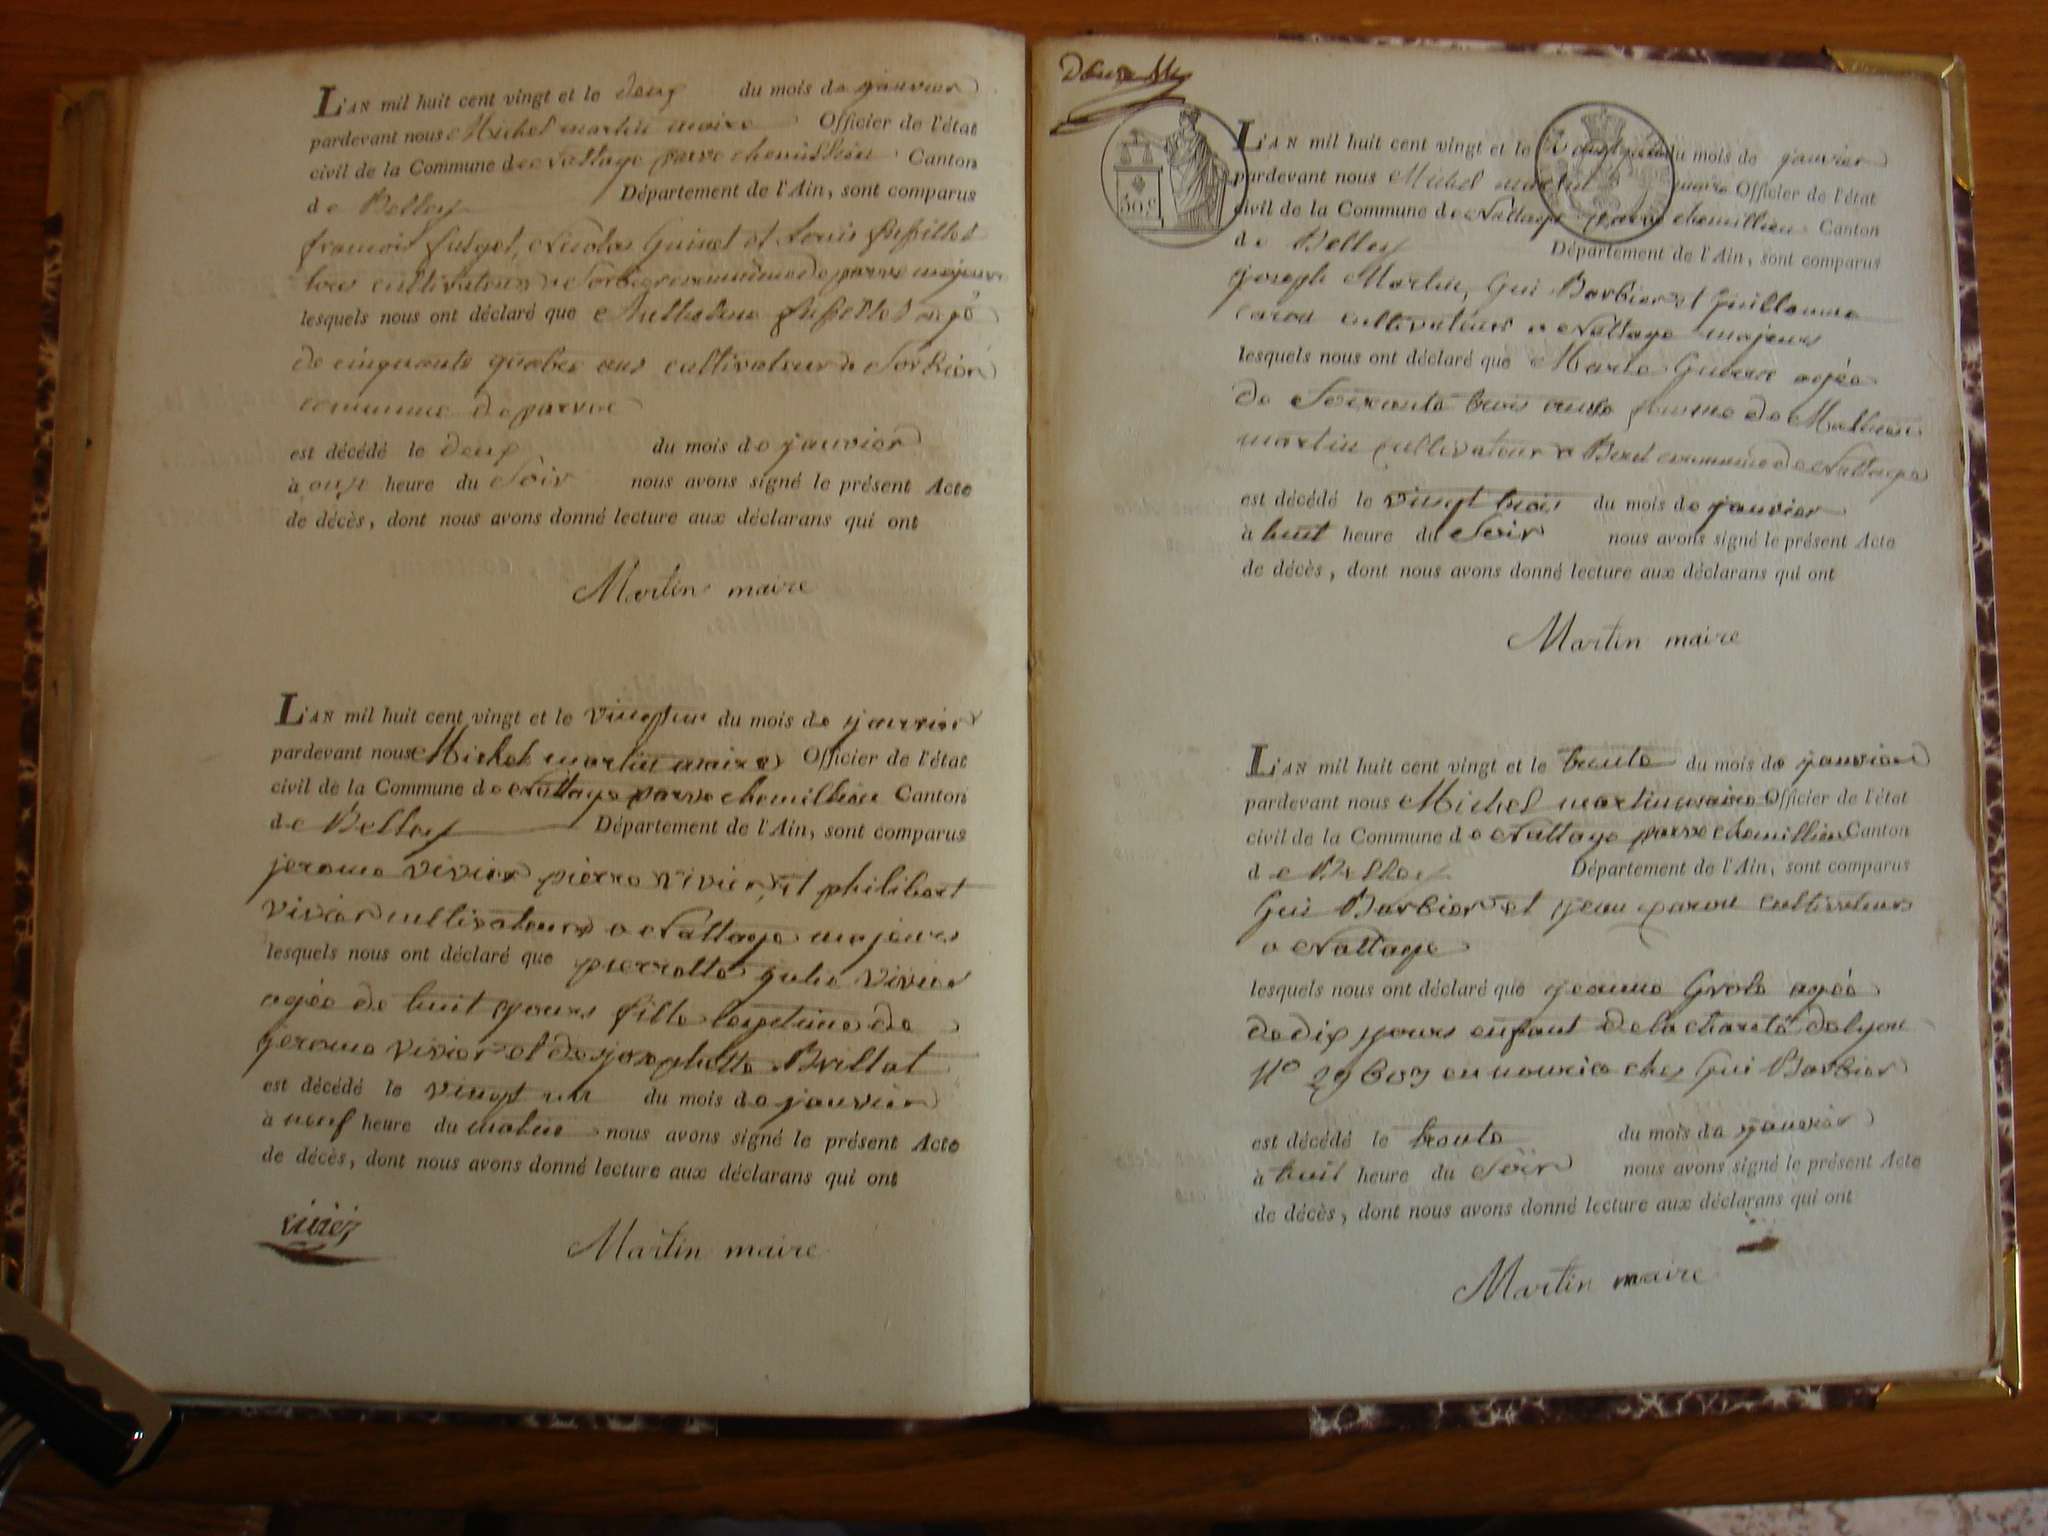 L'AN mil huit cent vingt et le deux du mois de janvier
pardevant nous Michel martin maire Officier de l'état
civil de la Commune de Nattage parve chemillieu Canton
de Belley Département de l'Ain, sont comparus
francois Nicolas Guinet et Louis
tous cultivateurs a Sorbier commune de parve majeurs
lesquels nous ont déclaré que Anthelme agé
de cinquante quatre ans cultivateur a Sorbier
commune de parve
est décédé le deux du mois de janvier
à onze heure du Soir nous avons signé le présent Acte
de décès, dont nous avons donné lecture aux déclarans qui ont
Martin maire
L'AN mil huit cent vingt et le vingt un du mois de janvier
pardevant nous Michel martin maire Officier de l'état
civil de la Commune de Nattage parve chemillieu Canton
de Belley Département de l'Ain, sont comparus
jerome vivier pierre vivier, et philibert
vivier cultivateurs a Nattage majeurs
lesquels nous ont déclaré que pierrette julie vivier
agée de huit jours fille legitime de
jerome vivier et de josephette Brillat
est décédé le vingt un du mois de janvier
à neuf heure du matin nous avons signé le présent Acte
de décès, dont nous avons donné lecture aux déclarans qui ont
viviez
Martin maire
L'AN mil huit cent vingt et le du mois de janvier
pardevant nous Michel martin maire Officier de l'état
civil de la Commune de Nattage parve chemillieu Canton
de Belley Département de l'Ain, sont comparus
joseph Martin, Gui Barbier et Guillaume
caron cultivateurs a Nattage majeurs
lesquels nous ont déclaré que Marie Guerre agée
de Soixante trois ans femme de Mathieu
martin cultivateur a commune de Nattage
est décédé le vingt trois du mois de janvier
à huit heure du Soir nous avons signé le présent Acte
de décès, dont nous avons donné lecture aux déclarans qui ont
Martin maire
L'AN mil huit cent vingt et le trente du mois de janvier
pardevant nous Michel martin maire Officier de l'état
civil de la Commune de Nattage parve chemillieu Canton
de Belley Département de l'Ain, sont comparus
Gui Barbier et jean caron cultivateurs
a Nattage
lesquels nous ont déclaré que jeanne Grole agée
de dix jours enfant de la charité de lyon
N° 29603 en nourice chez Gui Barbier
est décédé le trente du mois de janvier
à huit heure du Soir nous avons signé le présent Acte
de décès, dont nous avons donné lecture aux déclarans qui ont
Martin maire